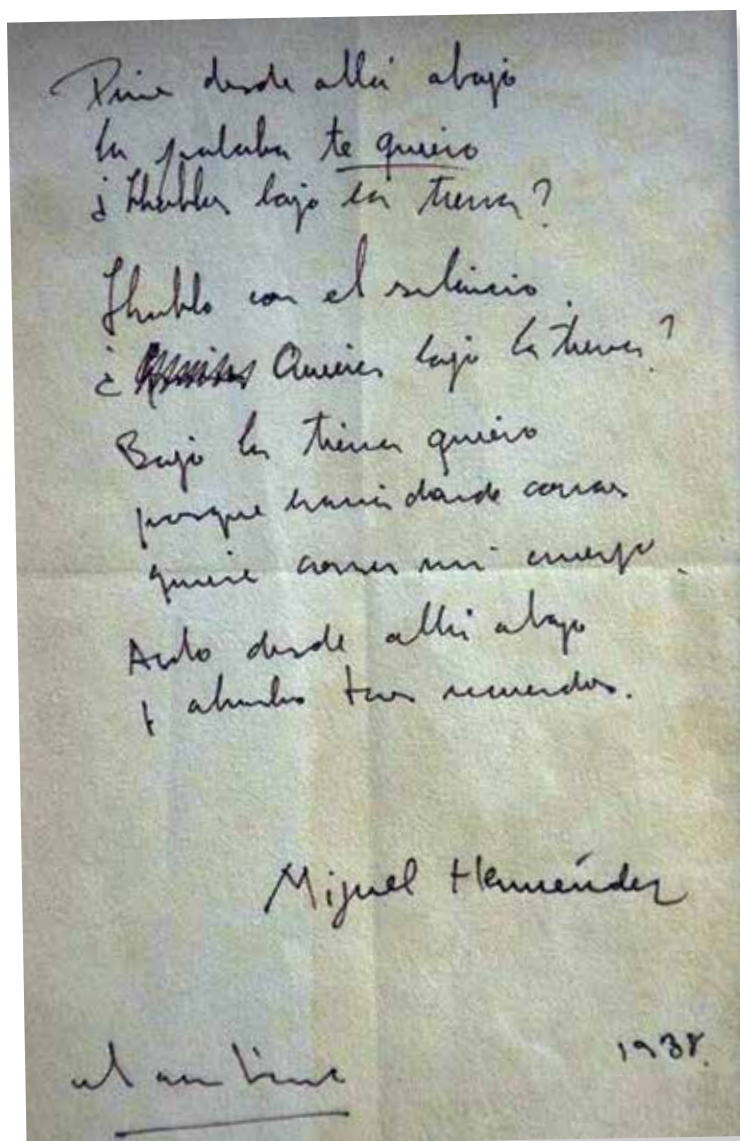 Dime desde allá abajo
la palabra te quiero
¿Hablas bajo la tierra?
Hablo con el silencio.
¿Quieres bajo la tierra?
Bajo la tierra quiero
porque hacia donde corras
quiere correr mi cuerpo.
Ardo desde allá abajo
y alumbro tus recuerdos.
Miguel Hernández
1938.